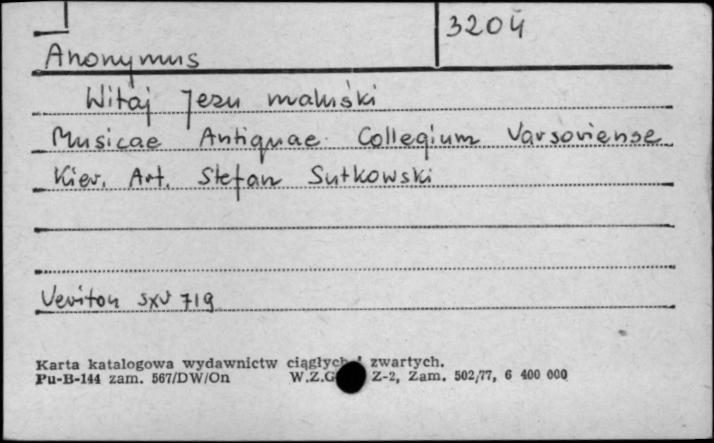 3204
Anonymus
Witaj Jezu maluśki
Musicae Antiquae Collegium Varsoviense
Kier. Art. Stefan Sutkowski
Veriton SXV 719
Karta katalogowa wydawnictw ciągłych i zwartych.
Pu-B-144 zam. 567/DW/On W.Z.G Z-2, Zam. 502/77, 6 400 000